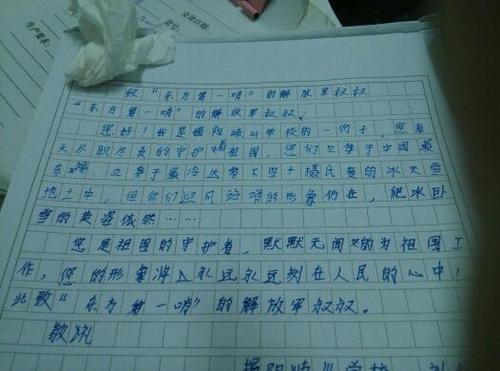 交货日期:
客户要求:
致“东方第一哨”的解放军叔叔
“东方第一哨”的解放军叔叔:
您好!我是揭阳岐山学校的一份子,您每
天尽职尽责的守护着祖国,您们卫守于中国最
东端,立于最冷达零下四十摄氏度的冰天雪
地土中,但你们迎风站哨的形象仍在,爬冰卧
雪的英姿依然……
您是祖国的守护者,默默无闻的为祖国工
作,您的形象将永远永远刻在人民的心中!
此致“东方第一哨”的解放军叔叔。
敬礼
揭阳岐山学校